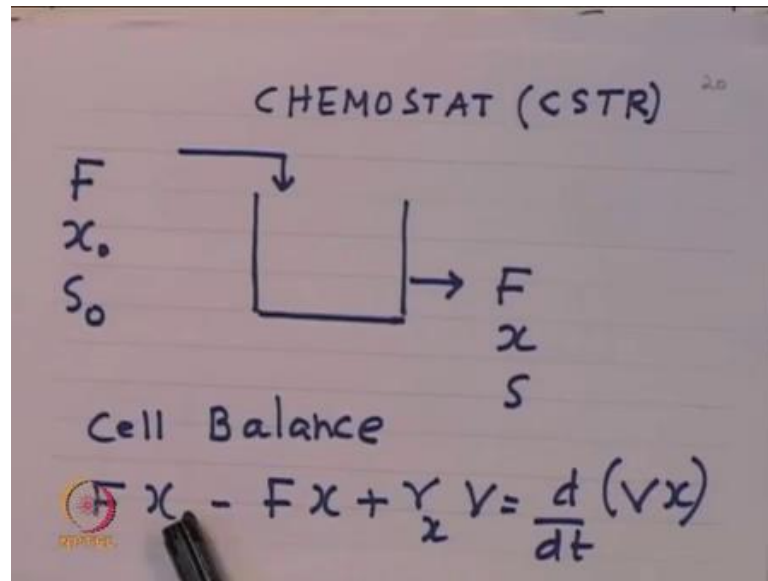 20
CHEMOSTAT (CSTR)
F
x₀
S₀
F
x
S
Cell Balance
F x₀ - Fx + r_x V = d/dt (Vx)
NPTEL